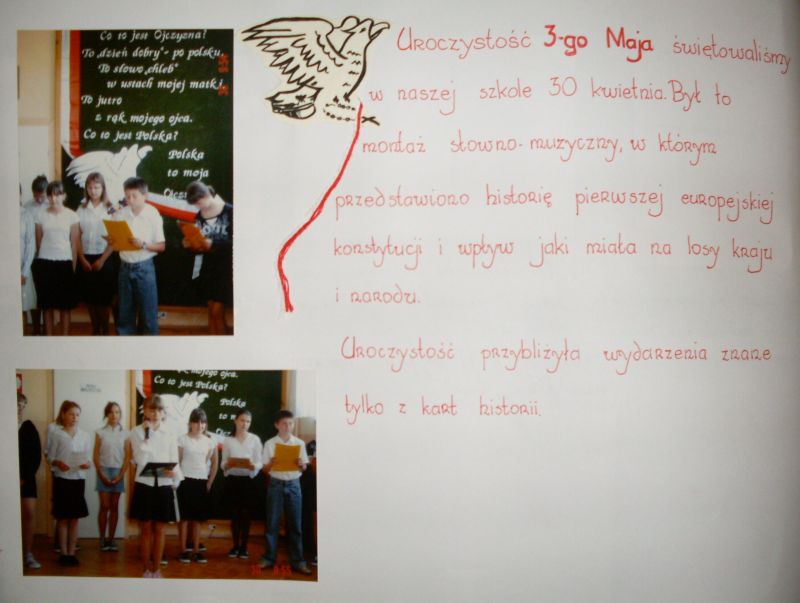 Co to jest Ojczyzna?
To „dzień dobry" - po polsku.
To słowo „chleb"
w ustach mojej matki.
To jutro
z rąk mojego ojca.
Co to jest Polska?
Polska
to moja
Uroczystość 3-go Maja świętowaliśmy
w naszej szkole 30 kwietnia. Był to
montaż słowno-muzyczny, w którym
przedstawiono historię pierwszej europejskiej
konstytucji i wpływ jaki miała na losy kraju
i narodu.
Uroczystość przybliżyła wydarzenia znane
tylko z kart historii.
mojego ojca.
Co to jest Polska?
Polska
to m